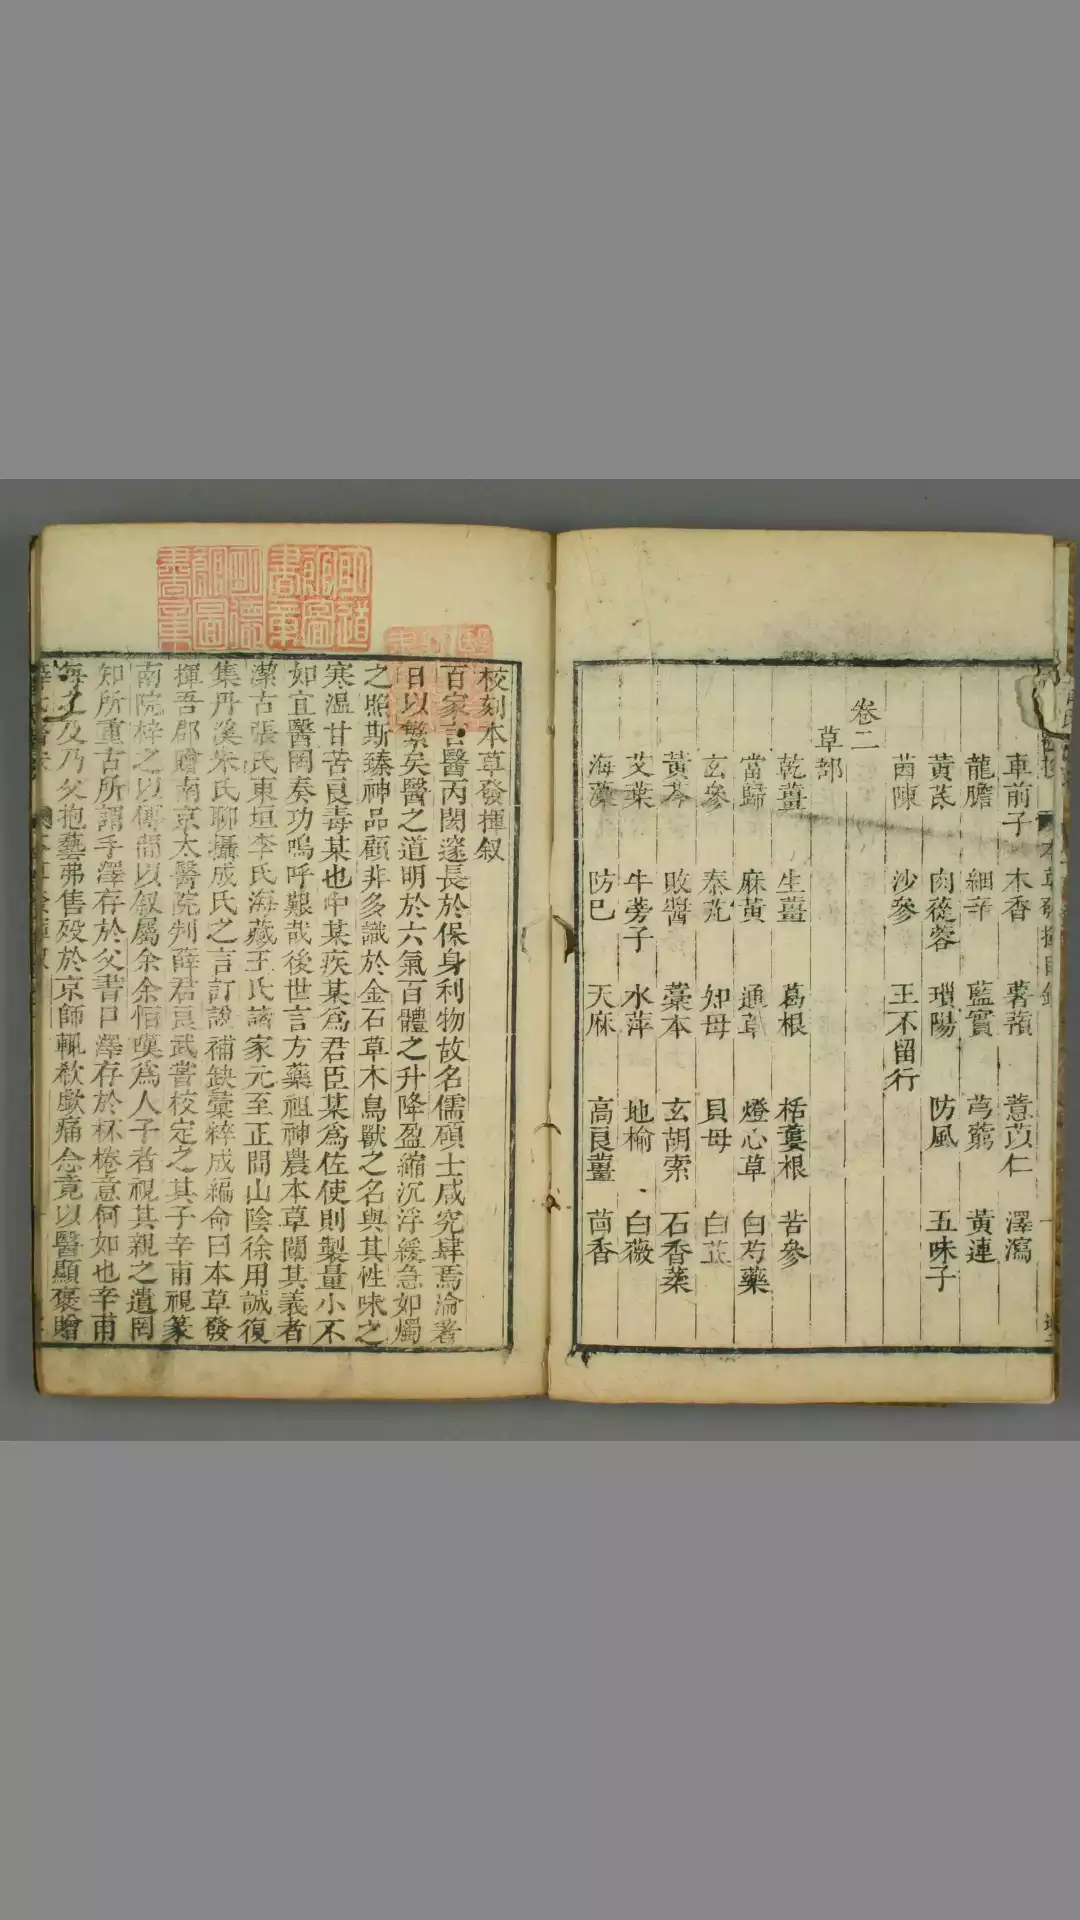 車前子 木香 薯蕷 薏苡仁 澤瀉
龍膽 細辛 藍實 芎藭 黃連
黃芪 肉蓯蓉 瑣陽 防風 五味子
茵陳 沙參 王不留行
卷二
草部
乾薑 生薑 葛根 栝蔞根 苦參
當歸 麻黃 通草 燈心草 白芍藥
玄參 秦艽 知母 貝母 白芷
黃芩 敗醬 藁本 玄胡索 石香葇
艾葉 牛蒡子 水萍 地榆 白薇
海藻 防已 天麻 高良薑 茴香
校刻本草發揮叙
百家言醫丙閎邃長於保身利物故名儒碩士咸究肆焉淪著
日以繁矣醫之道明於六氣百體之升降盈縮沉浮緩急如燭
之照斯臻神品顧非多識於金石草木鳥獸之名與其性味之
寒温甘苦良毒某也中某疾某爲君臣某爲佐使則製量小不
如宜醫罔奏功嗚呼艱哉後世言方藥祖神農本草闡其義者
潔古張氏東垣李氏海藏王氏諸家元至正間山陰徐用誠復
集丹溪朱氏聊攝成氏之言訂説補缺彙粹成編命曰本草發
揮吾郡贈南京太醫院判薛君良武嘗校定之其子辛甫視篆
南院梓之以傳蕳以叙屬余余慨嘆爲人子者視其親之遺罔
知所重古所謂手澤存於父書口澤存於杯棬意何如也辛甫
海之及乃父抱藝弗售殁於京師輒欷歔痛念竟以醫顯褒贈